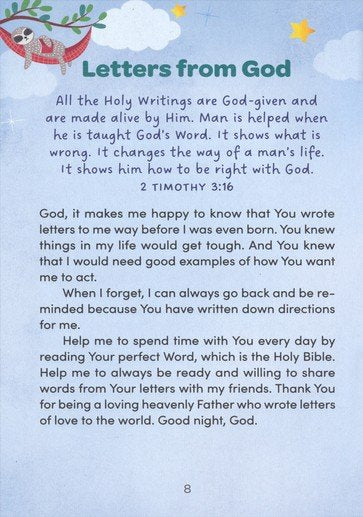 Letters from God
All the Holy Writings are God-given and
are made alive by Him. Man is helped when
he is taught God's Word. It shows what is
wrong. It changes the way of a man's life.
It shows him how to be right with God.
2 TIMOTHY 3:16
God, it makes me happy to know that You wrote
letters to me way before I was even born. You knew
things in my life would get tough. And You knew
that I would need good examples of how You want
me to act.
When I forget, I can always go back and be re-
minded because You have written down directions
for me.
Help me to spend time with You every day by
reading Your perfect Word, which is the Holy Bible.
Help me to always be ready and willing to share
words from Your letters with my friends. Thank You
for being a loving heavenly Father who wrote letters
of love to the world. Good night, God.
8